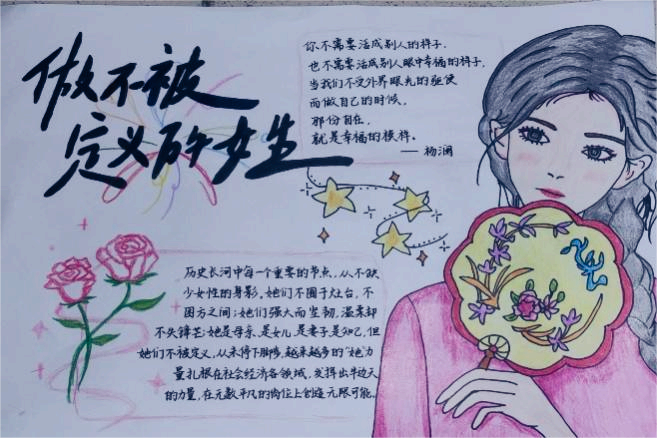 做不被
定义的女生
你不需要活成别人的样子,
也不需要活成别人眼中幸福的样子,
当我们不受外界眼光的驱使
而做自己的时候,
那份自在,
就是幸福的模样。
——杨澜
历史长河中每一个重要的节点,从不缺
少女性的身影。她们不囿于灶台,不
困方之间;她们强大而坚韧,温柔却
不失锋芒;她是母亲、是女儿、是妻子是知己,但
她们不被定义,从未停下脚步,越来越多的“她”力
量扎根在社会经济各领域,发挥出半边天
的力量,在无数平凡的岗位上创造无限可能。